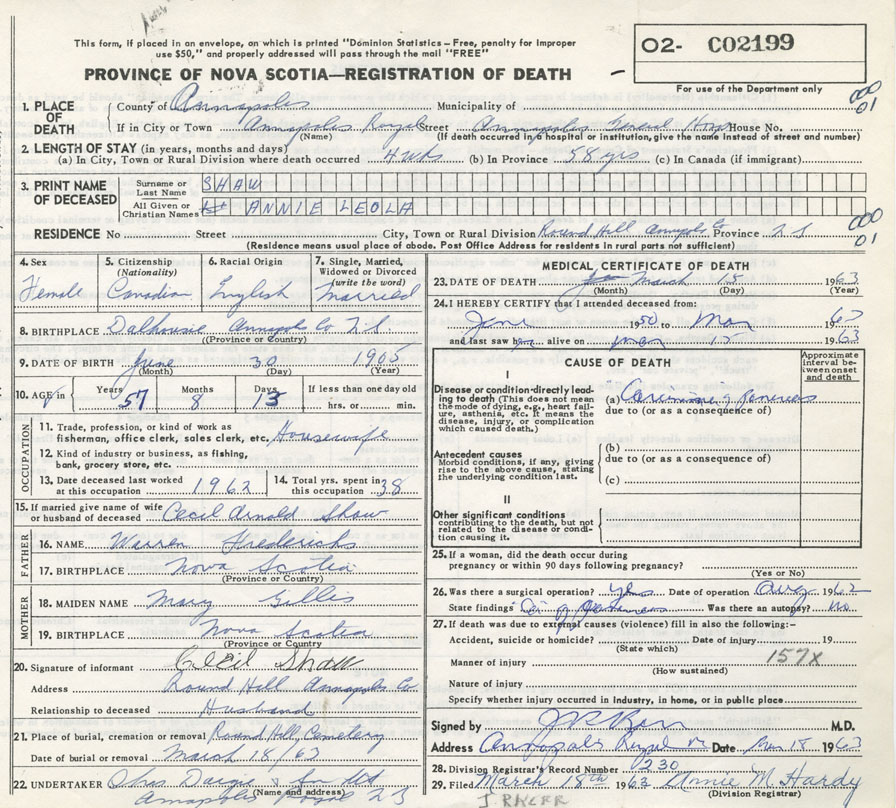 This form, if placed in an envelope, on which is printed "Dominion Statistics—Free, penalty for improper
use $50," and properly addressed will pass through the mail "FREE"
PROVINCE OF NOVA SCOTIA—REGISTRATION OF DEATH
O2- C02199
For use of the Department only
1. PLACE OF DEATH
County of Annapolis Municipality of
If in City or Town Annapolis Royal Street Annapolis General Hosp House No.
(Name) (If death occurred in a hospital or institution, give the name instead of street and number)
000
01
2. LENGTH OF STAY (in years, months and days)
(a) In City, Town or Rural Division where death occurred 4 wks (b) In Province 58 yrs (c) In Canada (if immigrant)
3. PRINT NAME OF DECEASED
Surname or Last Name SHAW
All Given or Christian Names ANNIE LEOLA
RESIDENCE No Street City, Town or Rural Division Round Hill Annapolis Co Province
(Residence means usual place of abode. Post Office Address for residents in rural parts not sufficient)
000
01
4. Sex Female
5. Citizenship (Nationality) Canadian
6. Racial Origin English
7. Single, Married, Widowed or Divorced (write the word) Married
8. BIRTHPLACE Dalhousie Annapolis Co N.S.
(Province or Country)
9. DATE OF BIRTH June 30 1905
(Month) (Day) (Year)
10. AGE in Years 57 Months 8 Days 13 If less than one day old hrs. or min.
OCCUPATION
11. Trade, profession, or kind of work as fisherman, office clerk, sales clerk, etc. Housewife
12. Kind of industry or business, as fishing, bank, grocery store, etc.
13. Date deceased last worked at this occupation 1962
14. Total yrs. spent in this occupation 38
15. If married give name of wife or husband of deceased Cecil Arnold Shaw
FATHER
16. NAME Warren Fredericks
17. BIRTHPLACE Nova Scotia
(Province or Country)
MOTHER
18. MAIDEN NAME Mary Gillis
19. BIRTHPLACE Nova Scotia
(Province or Country)
20. Signature of informant Cecil Shaw
Address Round Hill Annapolis Co
Relationship to deceased Husband
21. Place of burial, cremation or removal Round Hill, Cemetery
Date of burial or removal March 18/63
22. UNDERTAKER
(Name and address)
Annapolis Royal
MEDICAL CERTIFICATE OF DEATH
23. DATE OF DEATH March 15 1963
(Month) (Day) (Year)
24. I HEREBY CERTIFY that I attended deceased from:
1950 to Mar 1963
and last saw her alive on Mar 15 1963
CAUSE OF DEATH
Approximate interval between onset and death
I
Disease or condition directly leading to death (This does not mean the mode of dying, e.g., heart failure, asthenia, etc. It means the disease, injury, or complication which caused death.)
(a) Carcinoma of Pancreas
due to (or as a consequence of)
Antecedent causes
Morbid conditions, if any, giving rise to the above cause, stating the underlying condition last.
(b)
due to (or as a consequence of)
(c)
II
Other significant conditions
contributing to the death, but not related to the disease or condition causing it.
25. If a woman, did the death occur during pregnancy or within 90 days following pregnancy?
(Yes or No)
26. Was there a surgical operation? yes Date of operation Aug 1962
State findings Ca of Pancreas Was there an autopsy? no
27. If death was due to external causes (violence) fill in also the following:-
Accident, suicide or homicide? Date of injury 19
(State which)
Manner of injury 157X
(How sustained)
Nature of injury
Specify whether injury occurred in industry, in home, or in public place
Signed by M.D.
Address Annapolis Royal Date Mar 18 1963
28. Division Registrar's Record Number 230
29. Filed March 18th 1963 Annie M Hardy
(Division Registrar)